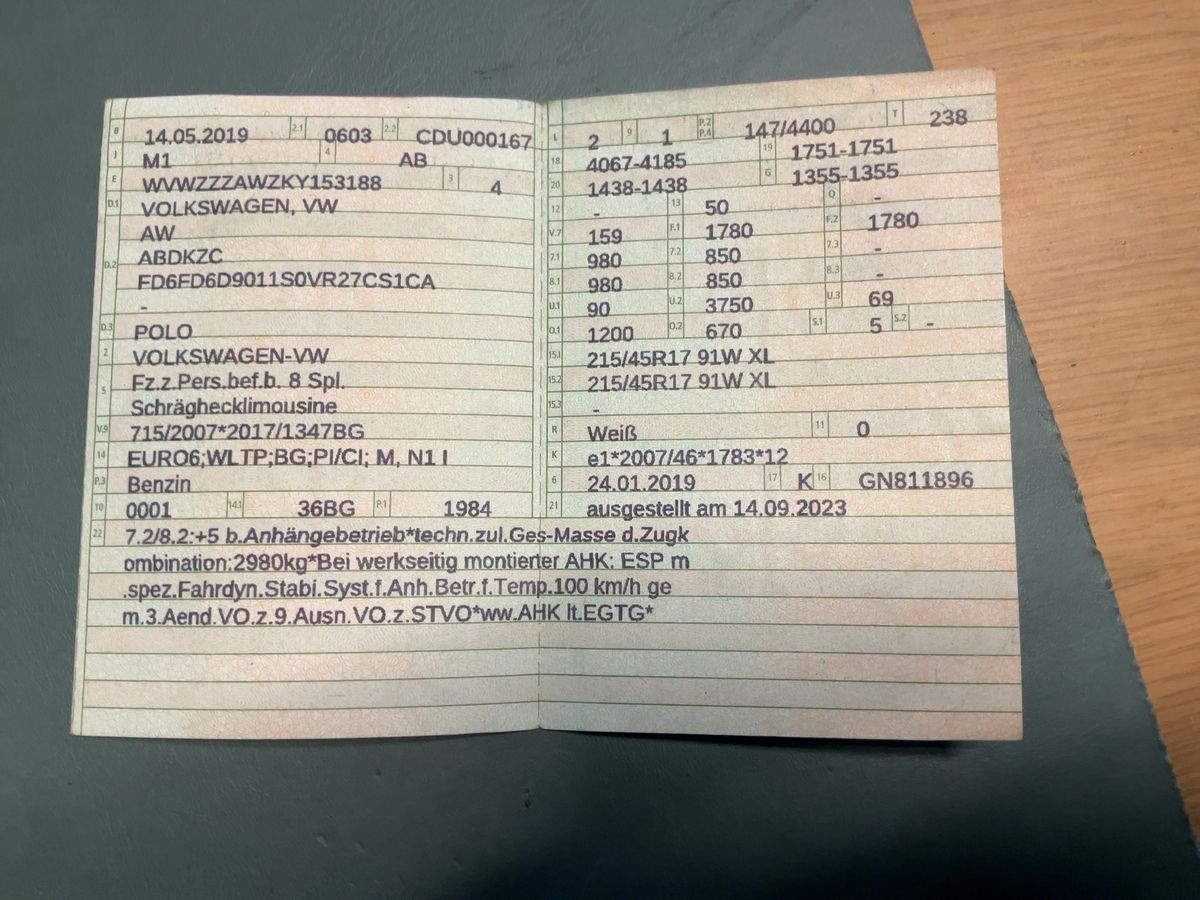 B 14.05.2019 2.1 0603 2.2 CDU000167
J M1 4 AB
E WVWZZZAWZKY153188 3 4
D.1 VOLKSWAGEN, VW
AW
D.2 ABDKZC
FD6FD6D9011S0VR27CS1CA
-
D.3 POLO
2 VOLKSWAGEN-VW
5 Fz.z.Pers.bef.b. 8 Spl.
Schräghecklimousine
V.9 715/2007*2017/1347BG
14 EURO6;WLTP;BG;PI/CI; M, N1 I
P.3 Benzin
10 0001 14.1 36BG P.1 1984
L 2 9 1 P.2 P.4 147/4400 T 238
18 4067-4185 19 1751-1751
20 1438-1438 G 1355-1355
12 - 13 50 Q -
V.7 159 F.1 1780 F.2 1780
7.1 980 7.2 850 7.3 -
8.1 980 8.2 850 8.3 -
U.1 90 U.2 3750 U.3 69
O.1 1200 O.2 670 S.1 5 S.2 -
15.1 215/45R17 91W XL
15.2 215/45R17 91W XL
15.3 -
R Weiß 11 0
K e1*2007/46*1783*12
6 24.01.2019 17 K 16 GN811896
21 ausgestellt am 14.09.2023
22 7.2/8.2:+5 b.Anhängebetrieb*techn.zul.Ges-Masse d.Zugk
ombination:2980kg*Bei werkseitig montierter AHK: ESP m
.spez.Fahrdyn.Stabi.Syst.f.Anh.Betr.f.Temp.100 km/h ge
m.3.Aend.VO.z.9.Ausn.VO.z.STVO*ww.AHK lt.EGTG*